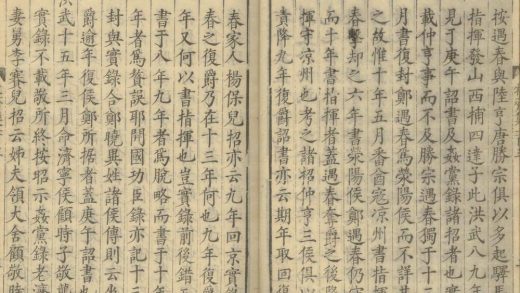 按遇春與陸亨唐勝宗俱以多起驛馬
指揮發山西捕四達子此洪武八九年
見于庚午詔書及姦黨錄諸招者也實
載仲亨事而不及勝宗遇春獨于十三
月書復封鄭遇春為滎陽侯而不詳其
之故惟十年五月番酋寇凉州書指揮
春擊却之六年書滎陽侯鄭遇春仍守
而十年書指揮者蓋遇春奪爵之後降
揮守凉州也考之諸招仲亨三侯俱以
責降九年復爵詔書亦云期年取回復
春家人楊保兒招亦云九年回京實錄
春之復爵乃在十三年何也九年復爵
年又何以書指揮也豈實錄前後錯
書于八年九年者為脫略而書于十
年者為聱誤耶開國功臣錄亦記十三
封與實錄合鄭曉異姓諸侯傳則云坐
爵逾年復侯鄭所據者蓋庚午詔書也
洪武十五年三月命濟寧侯顧時子敬
實錄不載敬所終按昭示姦黨錄老濟
妻舅李賽兒招云姊夫領大舍顧敬時